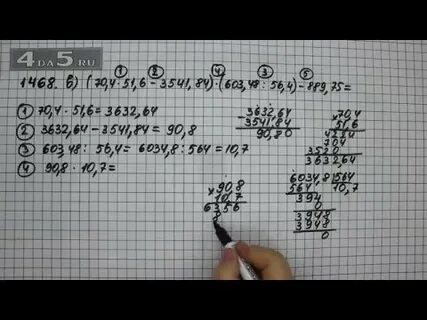 4ДА5.RU
1 2 4 3 5
1468. б) (70,4 · 51,6 - 3541,84) · (603,48 : 56,4) - 889,75 =
1 70,4 · 51,6 = 3632,64
2 3632,64 - 3541,84 = 90,8
3 603,48 : 56,4 = 6034,8 : 564 = 10,7
4 90,8 · 10,7 =
- 3632,64
3541,84
90,80
× 70,4
51,6
4224
704
3520
3632,64
6034,8 564
564 10,7
394
0
3948
3948
0
× 90,8
10,7
6356